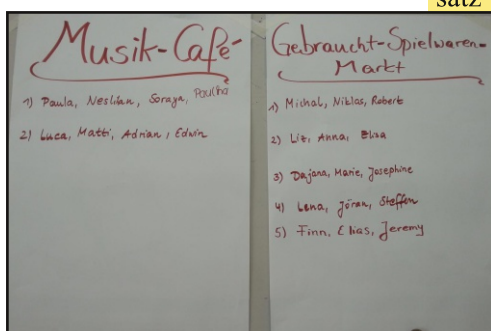 satz
Musik-Café
1) Paula, Neslihan, Soraya, Paulina
2) Luca, Matti, Adrian, Edwin
Gebraucht-Spielwaren-
Markt
1) Michal, Niklas, Robert
2) Liz, Anna, Elisa
3) Dajana, Marie, Josephine
4) Lena, Jöran, Steffen
5) Finn, Elias, Jeremy